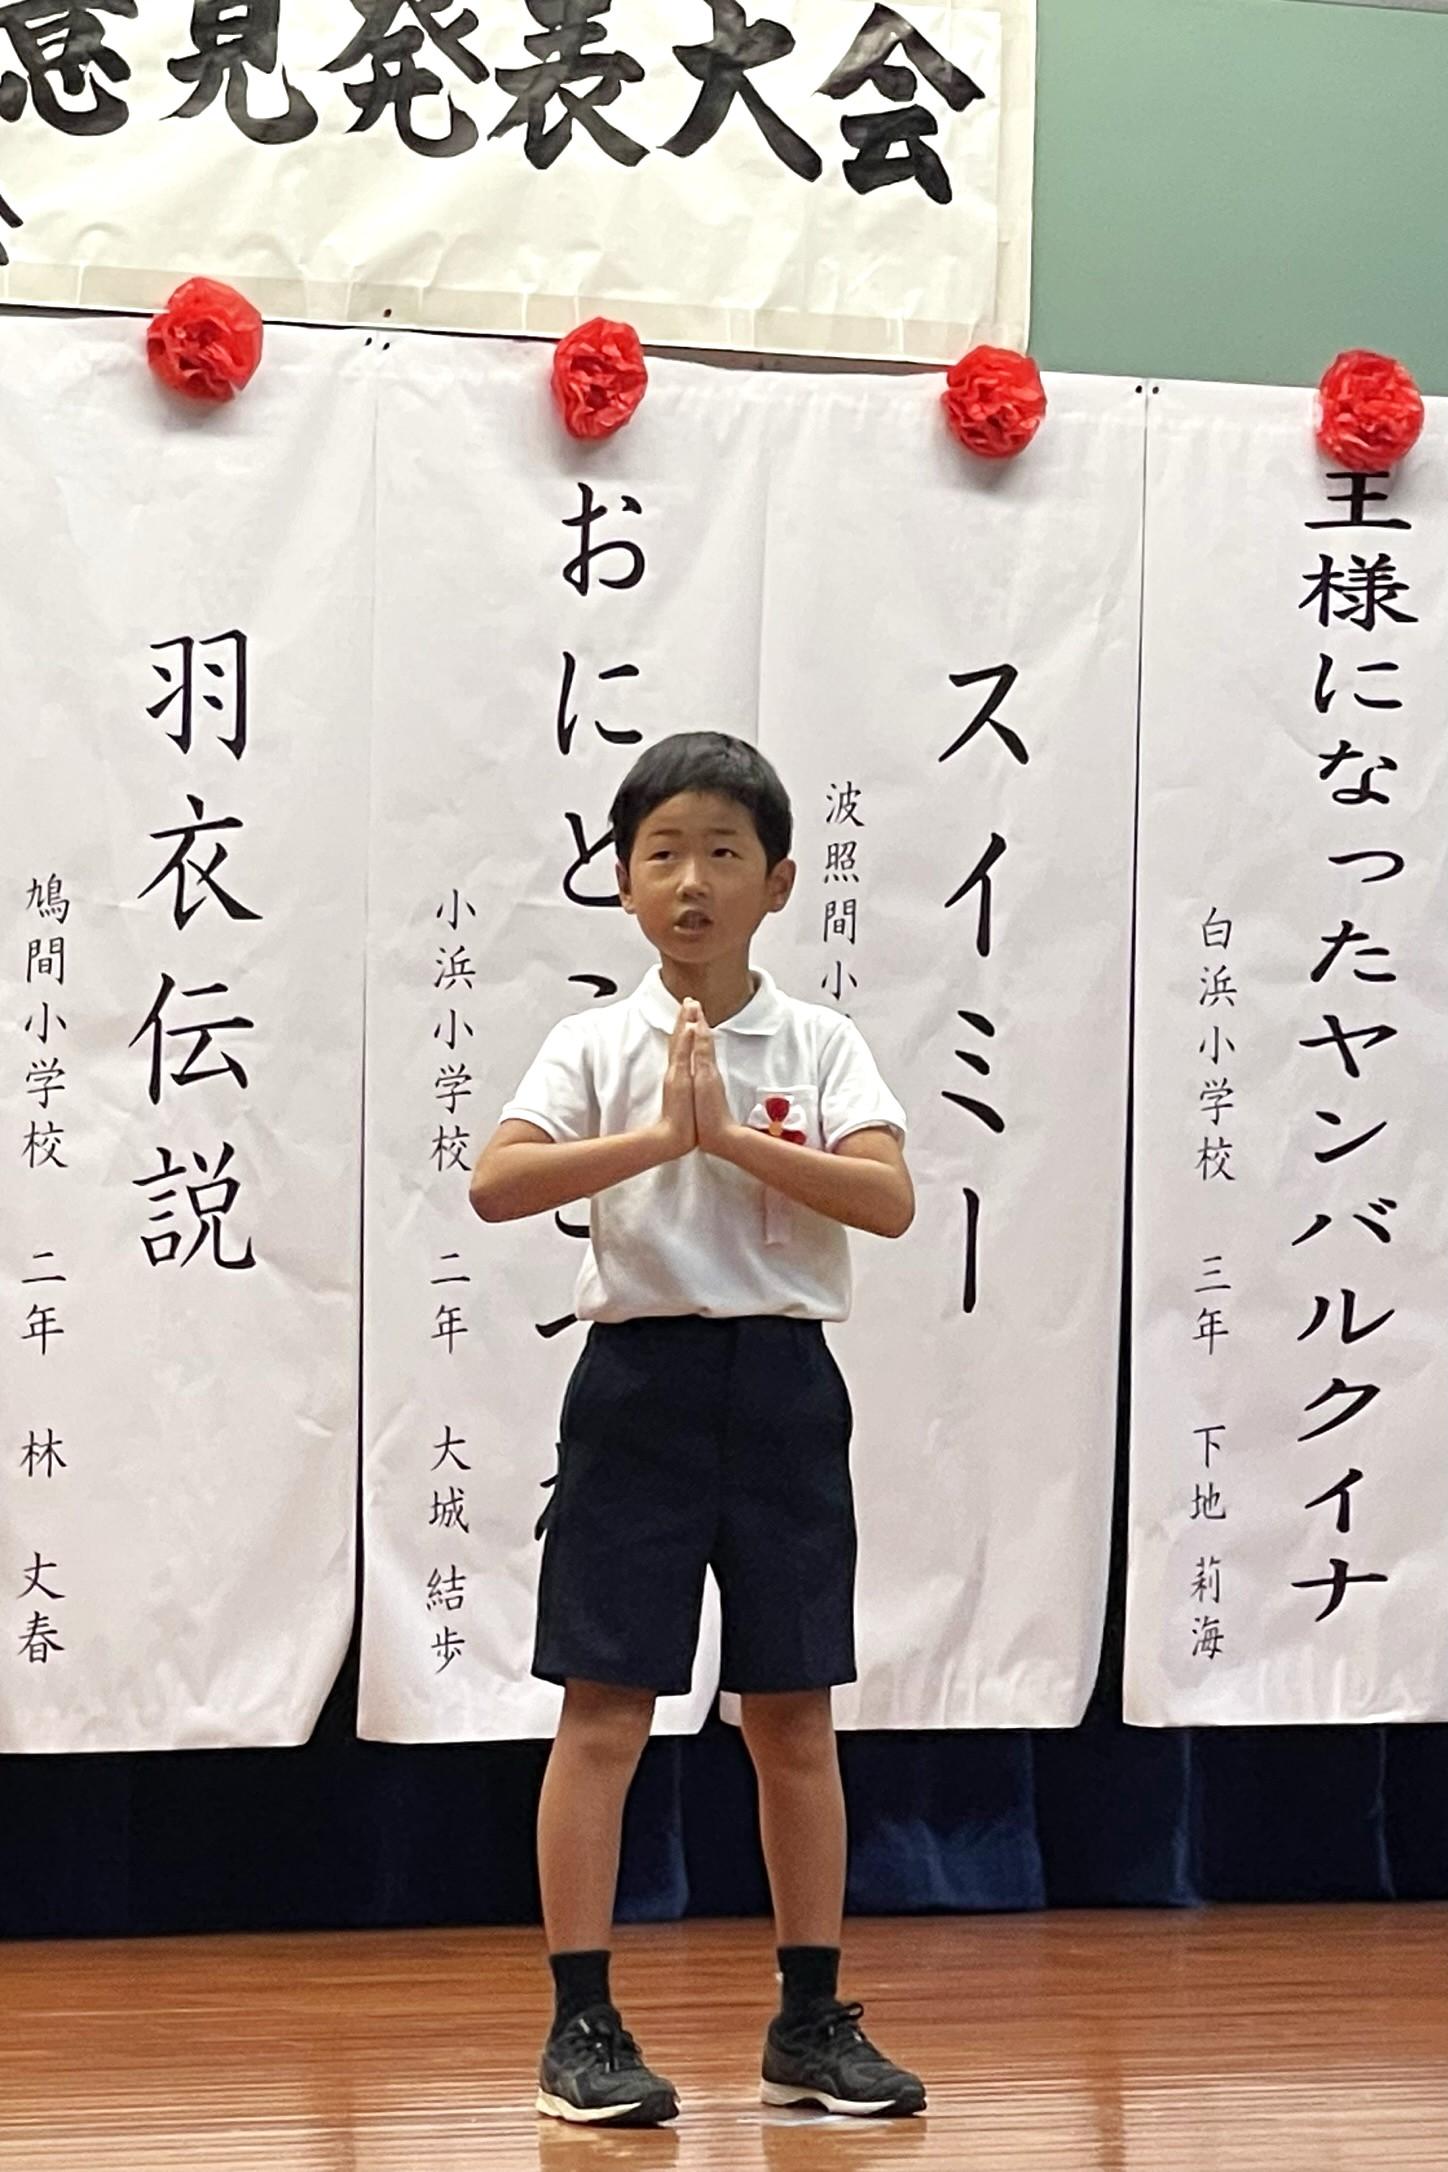 意見発表大会
王様になったヤンバルクイナ
白浜小学校 三年 下地 莉海
スイミー
波照間小
おにと
小浜小学校 二年 大城 結歩
羽衣伝説
鳩間小学校 二年 林 丈春